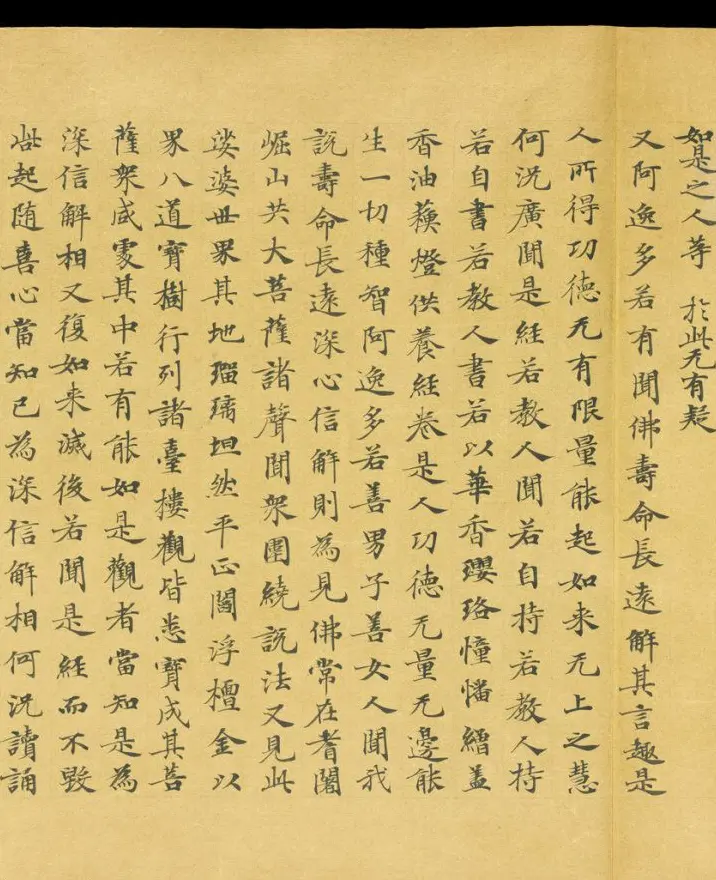 如是之人等 於此无有疑
又阿逸多若有聞佛壽命長遠解其言趣是
人所得功德无有限量能起如来无上之慧
何況廣聞是経若教人聞若自持若教人持
若自書若教人書若以華香瓔珞幢幡繒盖
香油蘓燈供養経卷是人功德无量无邊能
生一切種智阿逸多若善男子善女人聞我
說壽命長遠深心信解則為見佛常在耆闍
崛山共大菩薩諸聲聞衆圍繞說法又見此
娑婆世界其地瑠璃坦然平正閻浮檀金以
界八道寶樹行列諸臺樓觀皆悉寶成其菩
薩衆咸處其中若有能如是觀者當知是為
深信解相又復如来滅後若聞是経而不毀
呰起随喜心當知已為深信解相何況讀誦